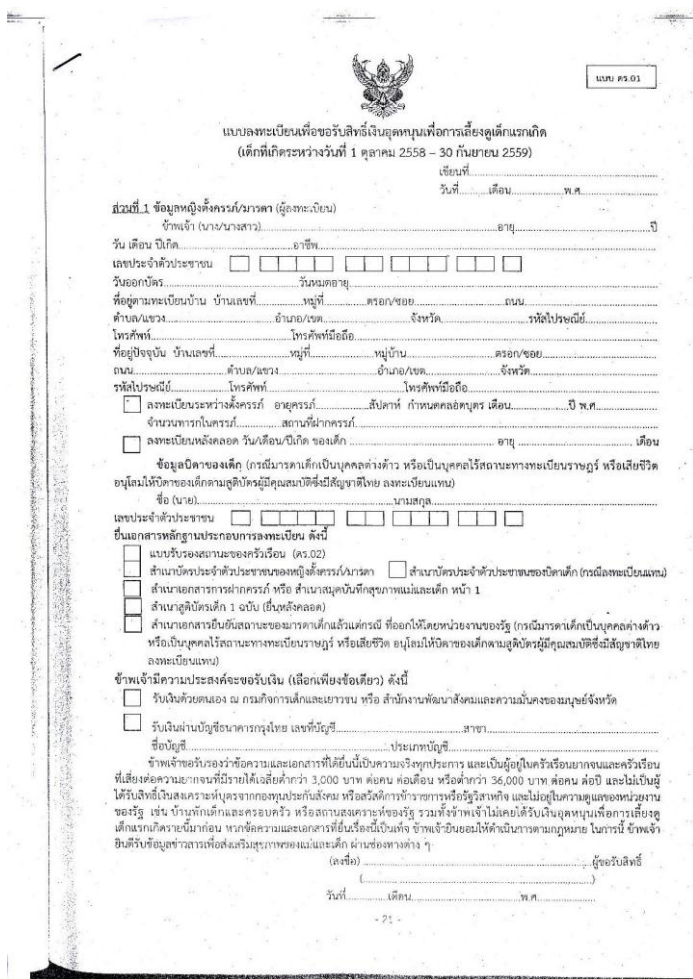 แบบ ดร.01
แบบลงทะเบียนเพื่อขอรับสิทธิ์เงินอุดหนุนเพื่อการเลี้ยงดูเด็กแรกเกิด
(เด็กที่เกิดระหว่างวันที่ 1 ตุลาคม 2558 – 30 กันยายน 2559)
เขียนที่
วันที่ เดือน พ.ศ.
ส่วนที่ 1 ข้อมูลหญิงตั้งครรภ์/มารดา (ผู้ลงทะเบียน)
ข้าพเจ้า (นาง/นางสาว) อายุ ปี
วัน เดือน ปีเกิด อาชีพ
เลขประจำตัวประชาชน
วันออกบัตร วันหมดอายุ
ที่อยู่ตามทะเบียนบ้าน บ้านเลขที่ หมู่ที่ ตรอก/ซอย ถนน
ตำบล/แขวง อำเภอ/เขต จังหวัด รหัสไปรษณีย์
โทรศัพท์ โทรศัพท์มือถือ
ที่อยู่ปัจจุบัน บ้านเลขที่ หมู่ที่ หมู่บ้าน ตรอก/ซอย
ถนน ตำบล/แขวง อำเภอ/เขต จังหวัด
รหัสไปรษณีย์ โทรศัพท์ โทรศัพท์มือถือ
ลงทะเบียนระหว่างตั้งครรภ์ อายุครรภ์ สัปดาห์ กำหนดคลอดบุตร เดือน ปี พ.ศ.
จำนวนทารกในครรภ์ สถานที่ฝากครรภ์
ลงทะเบียนหลังคลอด วัน/เดือน/ปีเกิด ของเด็ก อายุ เดือน
ข้อมูลบิดาของเด็ก (กรณีมารดาเด็กเป็นบุคคลต่างด้าว หรือเป็นบุคคลไร้สถานะทางทะเบียนราษฎร์ หรือเสียชีวิต
อนุโลมให้บิดาของเด็กตามสูติบัตรผู้มีคุณสมบัติซึ่งมีสัญชาติไทย ลงทะเบียนแทน)
ชื่อ (นาย) นามสกุล
เลขประจำตัวประชาชน
ยื่นเอกสารหลักฐานประกอบการลงทะเบียน ดังนี้
แบบรับรองสถานะของครัวเรือน (ดร.02)
สำเนาบัตรประจำตัวประชาชนของหญิงตั้งครรภ์/มารดา สำเนาบัตรประจำตัวประชาชนของบิดาเด็ก (กรณีลงทะเบียนแทน)
สำเนาเอกสารการฝากครรภ์ หรือ สำเนาสมุดบันทึกสุขภาพแม่และเด็ก หน้า 1
สำเนาสูติบัตรเด็ก 1 ฉบับ (ยื่นหลังคลอด)
สำเนาเอกสารยืนยันสถานะของมารดาเด็กแล้วแต่กรณี ที่ออกให้โดยหน่วยงานของรัฐ (กรณีมารดาเด็กเป็นบุคคลต่างด้าว
หรือเป็นบุคคลไร้สถานะทางทะเบียนราษฎร์ หรือเสียชีวิต อนุโลมให้บิดาของเด็กตามสูติบัตรผู้มีคุณสมบัติซึ่งมีสัญชาติไทย
ลงทะเบียนแทน)
ข้าพเจ้ามีความประสงค์จะขอรับเงิน (เลือกเพียงข้อเดียว) ดังนี้
รับเงินด้วยตนเอง ณ กรมกิจการเด็กและเยาวชน หรือ สำนักงานพัฒนาสังคมและความมั่นคงของมนุษย์จังหวัด
รับเงินผ่านบัญชีธนาคารกรุงไทย เลขที่บัญชี สาขา
ชื่อบัญชี ประเภทบัญชี
ข้าพเจ้าขอรับรองว่าข้อความและเอกสารที่ได้ยื่นนี้เป็นความจริงทุกประการ และเป็นผู้อยู่ในครัวเรือนยากจนและครัวเรือน
ที่เสี่ยงต่อความยากจนที่มีรายได้เฉลี่ยต่ำกว่า 3,000 บาท ต่อคน ต่อเดือน หรือต่ำกว่า 36,000 บาท ต่อคน ต่อปี และไม่เป็นผู้
ได้รับสิทธิ์เงินสงเคราะห์บุตรจากกองทุนประกันสังคม หรือสวัสดิการข้าราชการหรือรัฐวิสาหกิจ และไม่อยู่ในความดูแลของหน่วยงาน
ของรัฐ เช่น บ้านพักเด็กและครอบครัว หรือสถานสงเคราะห์ของรัฐ รวมทั้งข้าพเจ้าไม่เคยได้รับเงินอุดหนุนเพื่อการเลี้ยงดู
เด็กแรกเกิดรายนี้มาก่อน หากข้อความและเอกสารที่ยื่นเรื่องนี้เป็นเท็จ ข้าพเจ้ายินยอมให้ดำเนินการตามกฎหมาย ในการนี้ ข้าพเจ้า
ยินดีรับข้อมูลข่าวสารเพื่อส่งเสริมสุขภาพของแม่และเด็ก ผ่านช่องทางต่าง ๆ
(ลงชื่อ) ผู้ขอรับสิทธิ์
( )
วันที่ เดือน พ.ศ.
- 21 -